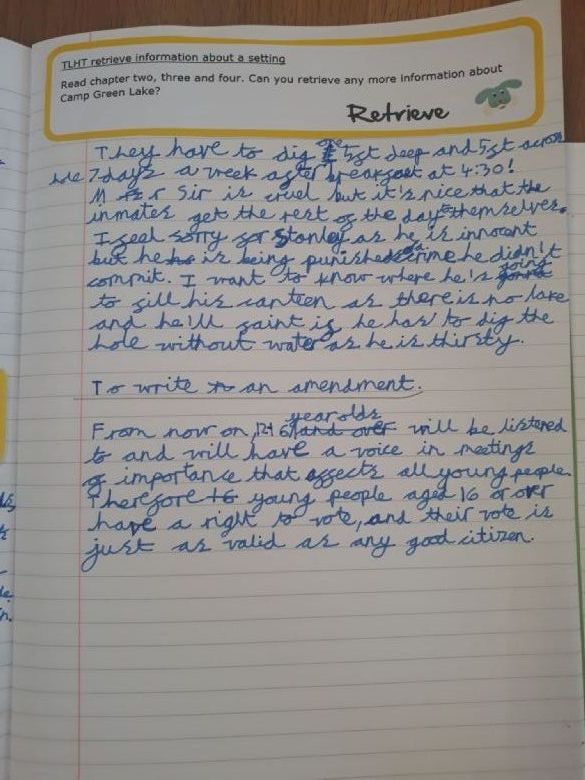 TLHT retrieve information about a setting
Read chapter two, three and four. Can you retrieve any more information about
Camp Green Lake?
Retrieve
They have to dig one 5ft deep and 5ft across
hole 7 days a week after breakfast at 4:30!
Mr Sir is cruel but it's nice that the
inmates get the rest of the day to themselves.
I feel sorry for Stanley as he is innocent
but he is being punished for a crime he didn't
commit. I want to know where he's going
to fill his canteen as there is no lake
and he'll faint if he has to dig the
hole without water as he is thirsty.
To write an amendment.
From now on, 12-16 year olds will be listened
to and will have a voice in meetings
of importance that affects all young people.
Therefore young people aged 16 or over
have a right to vote, and their vote is
just as valid as any good citizen.